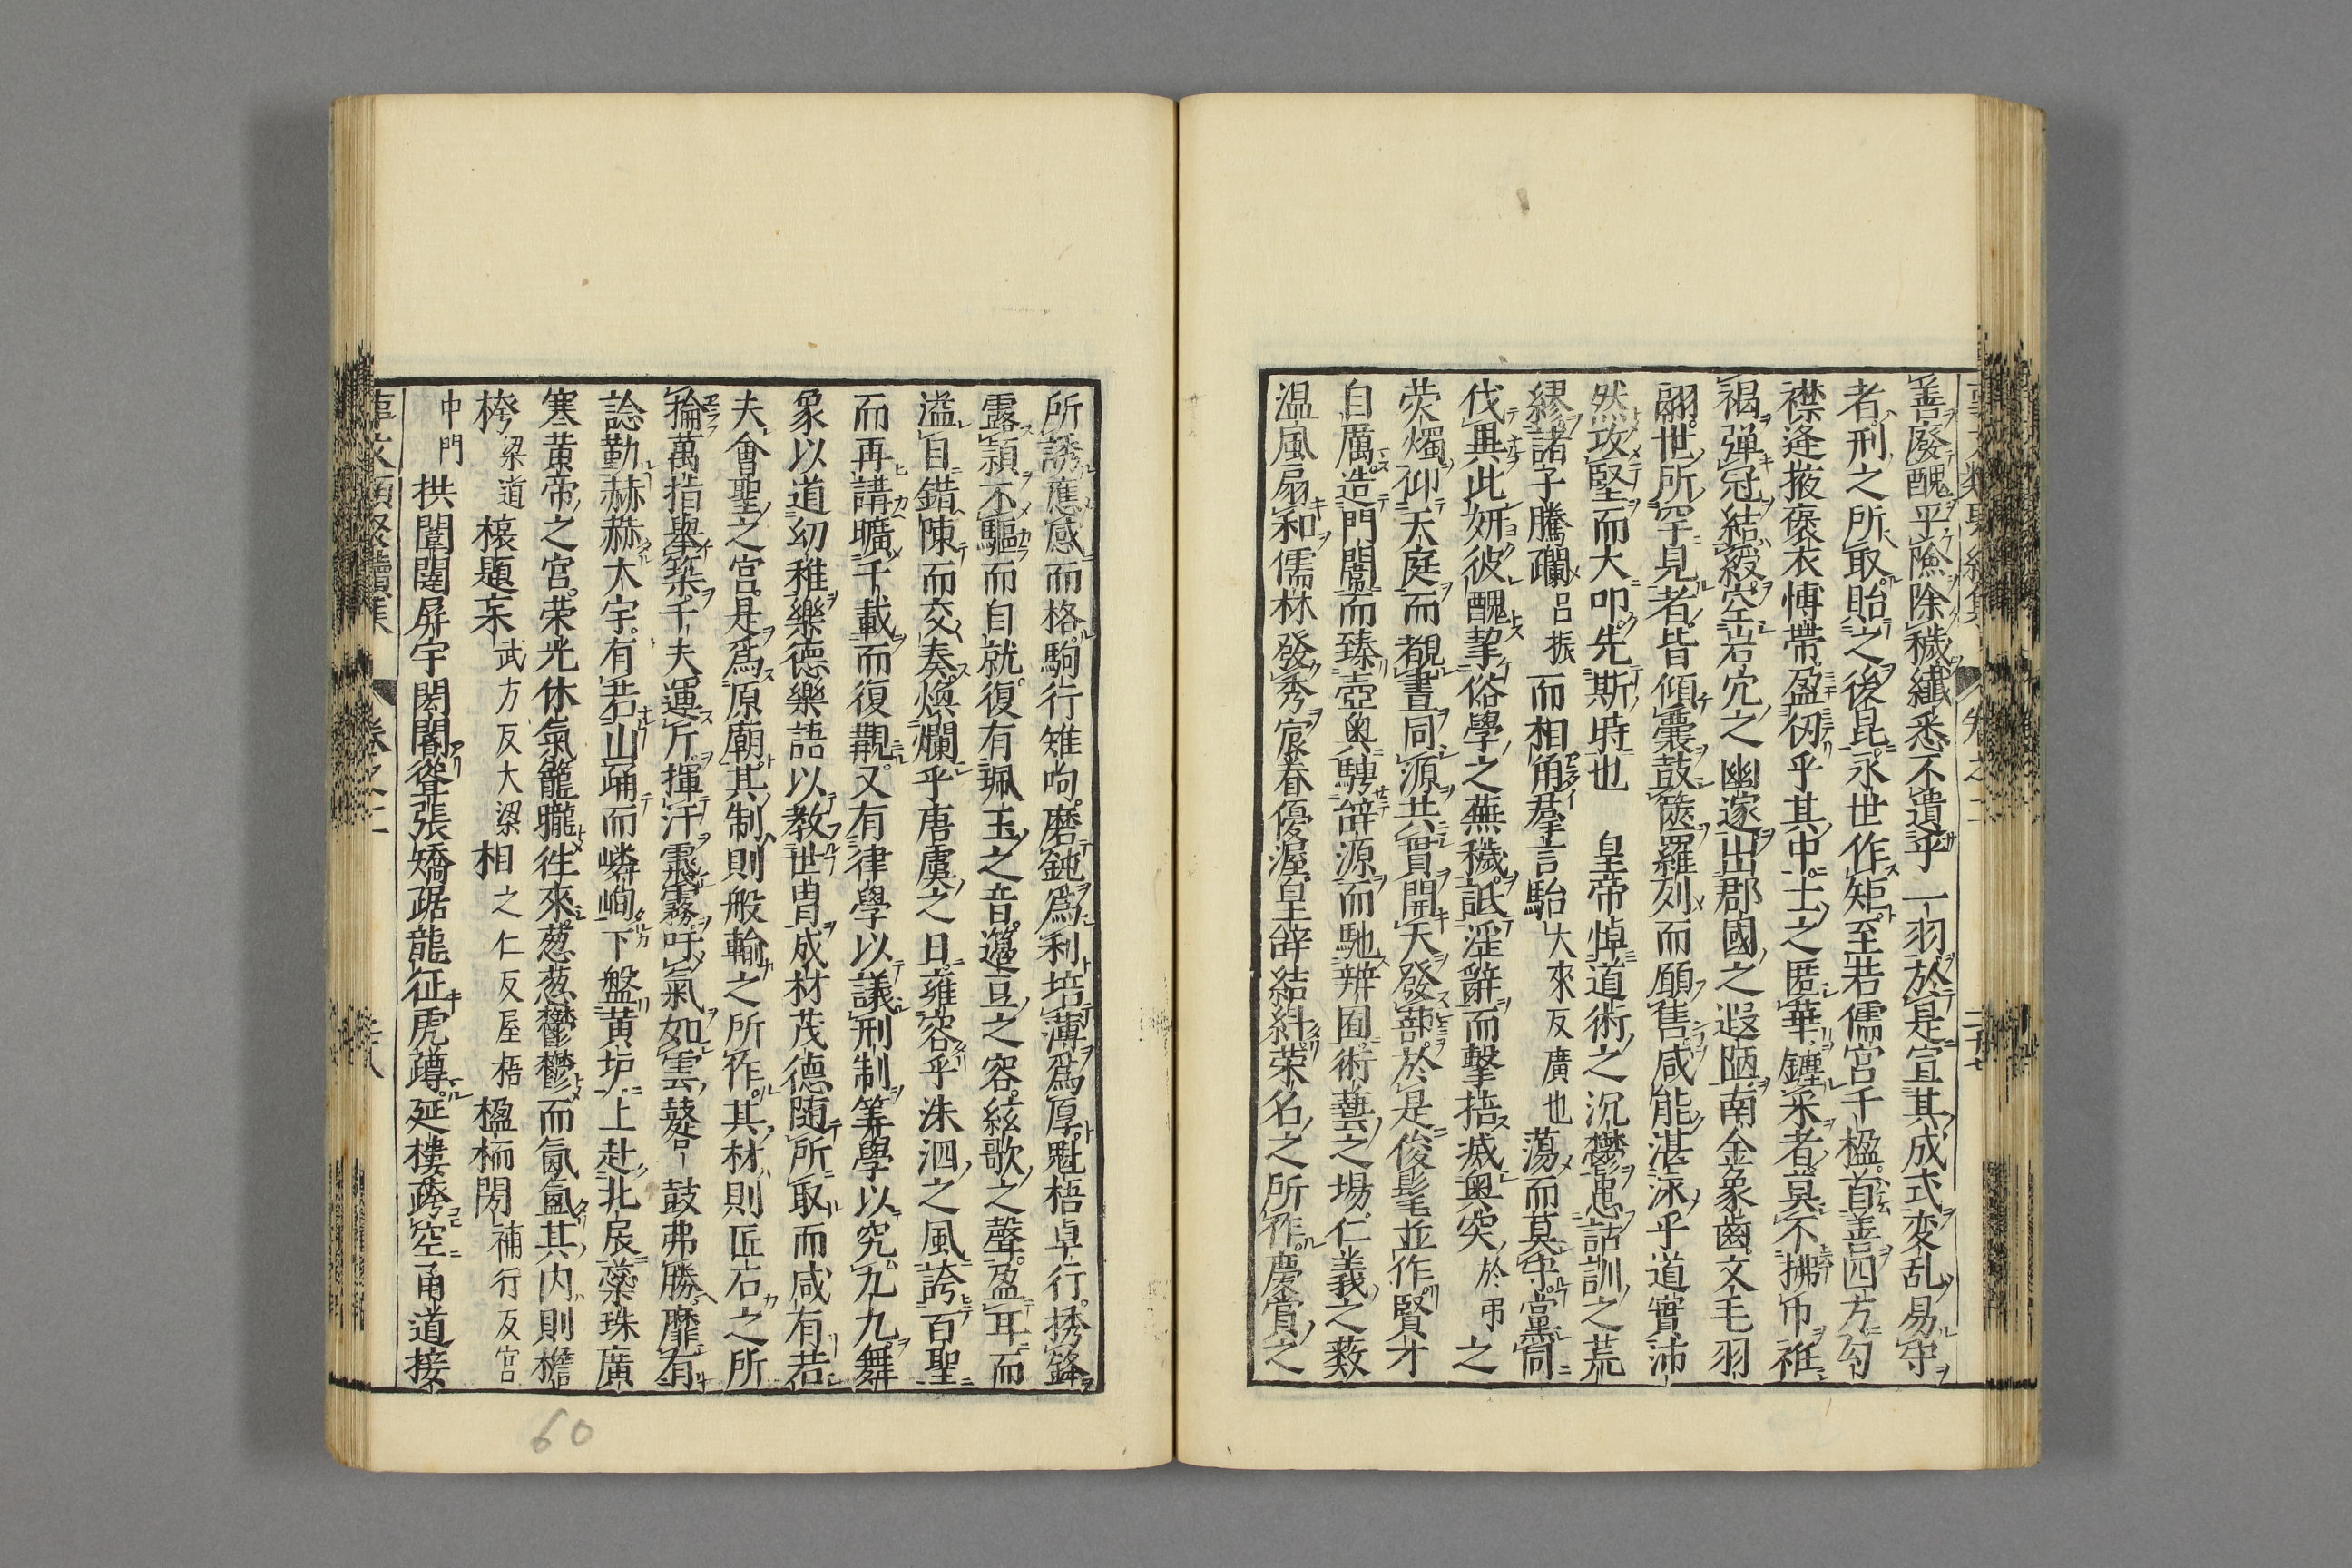 善廢醜平險除穢纎悉不遺乎一羽於是宣其成式変乱易守
者刑之所取貽之後昆永世作矩至若儒宮千楹首善四方勾
襟逢掖褒衣博帶盈仞乎其中士之匿華鏟采者莫不拂巾袵
褐弹冠結綬空岩穴之幽邃出郡國之遐陋南金象齒文毛羽
翮世所罕見者皆傾囊鼓篋羅列而願售咸能湛泳乎道實沛
然攻堅而大叩先斯時也 皇帝悼道術之沉欝患詁訓之荒
繆諸子騰躪呂振而相角羣言駘大來反廣也蕩而莫守黨同
伐異此妍彼醜挈俗學之蕪穢詆淫辭而擊掊滅奥突於弔之
荧燭仰天庭而覩晝同源共貫開天發蔀於是俊髦並作賢才
自厲造門闑而臻壺奥騁辝源而馳辨囿術藝之場仁義之薮
温風扇和儒林發秀宸眷優渥皇辝結紏荣名之所作慶賞之
所誘應感而格駒行雉呴磨鈍爲利培薄爲厚魁梧卓行捞鋒
露頴不驅而自就復有珮玉之音籩豆之容絃歌之聲盈耳而
溢目錯陳而交奏煥爛乎唐虞之日雍容乎洙泗之風誇百聖
而再講曠千載而復覩又有律學以議刑制筭學以究九九舞
象以道幼稚樂德樂語以教世胄成材茂德随所取而咸有若
夫會聖之宮是爲原廟其制則般輸之所作其材則匠石之所
掄萬指舉築千夫運斤揮汗霡霧吁氣如雲鼛鼓弗勝靡有
諗勤赫赫大宇有若山踊而嶙峋下盤黄垆上赴北辰蘂珠廣
寒黄帝之宮荣光休氣籠朧徃來葱葱欝欝而氤氳其内則檐
㭠梁道榱題杗武方反大梁相之仁反屋梧楹栭閍補行反宫
中門拱闈闥屏宇閎闢聳張矯踞龍征虎蹲延樓跨空甬道接